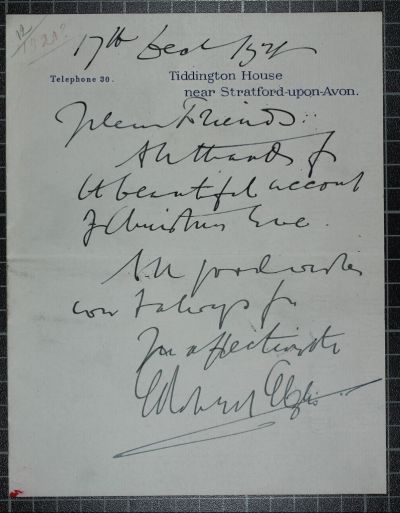 17th Dec
Telephone 30.
Tiddington House
near Stratford-upon-Avon.
Friends:
All thanks for
the beautiful account
of Christmas Eve.
All good wishes
now & always fr
affectionate
Edward Elgar